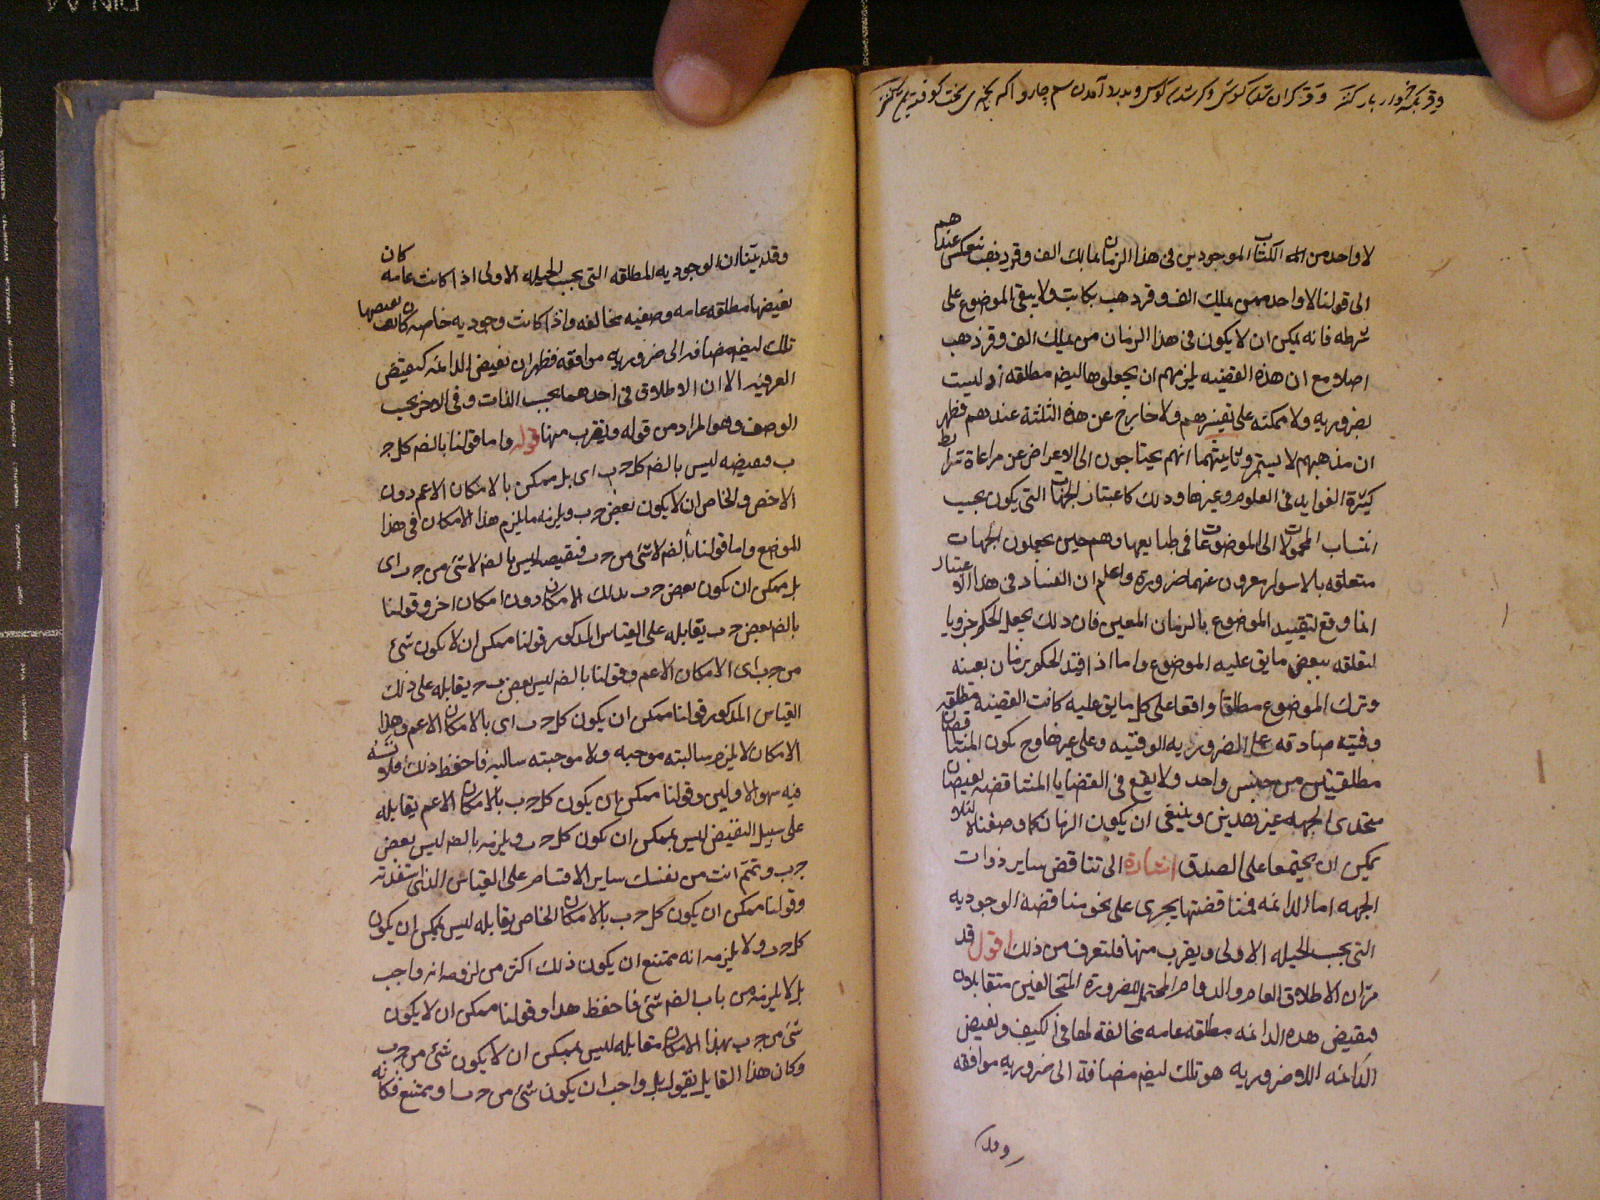 لا واحد من الكتاب الموجودين في هذا الزمان بمالك الف وقر ذهب ينعكس عندهم
الى قولنا لا واحد ممن يملك الف وقر ذهب بكاتب ولا يبقى الموضوع على
شرطه فانه يمكن ان لا يكون في هذا الزمان من يملك الف وقر ذهب
اصلا مع ان هذه القضيه يلزمهم ان يجعلوها ايضا مطلقه اذ ليست
بضروريه ولا ممكنه على تفسيرهم ولا خارج عن هذه الثلثة عندهم فظهر
ان مذهبهم لا يستمر وثانيتهما انهم يحتاجون الى الاعراض عن مراعاة شرايط
كثيرة الفوايد في العلوم وغيرها وذلك كاعتبار الجهات التي يكون بحسب
انتساب المحمولات الى الموضوعات في طبايعها وهم حين يجعلون الجهات
متعلقه بالاسوار يعرون عنها ضرورة واعلم ان الفساد في هذا الاعتبار
انما وقع لتقييد الموضوع بالزمان المعين فان ذلك يجعل الحكم جزويا
لتعلقه ببعض ما يق عليه الموضوع واما اذا قيد الحكم بزمان بعينه
وترك الموضوع مطلقا واقعا على كل ما يق عليه كانت القضيه مطلقه
وقتيه صادقه على الضروريه الوقتيه وعلى غيرها وح يكون المتناقضان
مطلقتين من جنس واحد ولا يقع في القضايا المتناقضه نقيضان
متحدى الجهه غير هذين وينبغي ان يكون الزمان كما وصفناه لئلا
يمكن ان يجتمعا على الصدق اشارة الى تناقض ساير ذوات
الجهه اما الدائمه فمناقضتها يجرى على نحو مناقضة الوجوديه
التي بحسب الحيله الاولى ويقرب منها فلتعرف من ذلك اقول قد
مر ان الاطلاق العام والدوام المحتمل للضرورة المتخالفين متقابلان
فنقيض هذه الدائمه مطلقه عامه مخالفة لها في الكيف ونقيض
الدائمه اللاضروريه هو تلك ايضا مضافة الى ضروريه موافقه
وقد
وقد بينا ان الوجوديه المطلقه التي بحسب الحيله الاولى اذا كانت عامه كان
نقيضها مطلقه عامه وصفيه مخالفه واذا كانت وجوديه خاصه كان نقيضها
تلك ايضا مضافه الى ضروريه موافقه فظهر ان نقيض الدائمه كنقيض
العرفيه الا ان الاطلاق في احدهما بحسب الذات وفي الاخر بحسب
الوصف وهو المراد من قوله ويقرب منها قوله واما قولنا بالضم كل ج
ب فنقيضه ليس بالضم كل ج ب اى بل ممكن بالامكان الاعم دون
الاخص والخاص ان لا يكون بعض ج ب ويلزمه ما يلزم هذا الامكان في هذا
الموضع واما قولنا بالضم لا شئ من ج ب فنقيضه ليس بالضم لا شئ من ج ب اى
بل ممكن ان يكون بعض ج ب بذلك الامكان دون امكان اخر وقولنا
بالضم بعض ج ب يقابله على القياس المذكور قولنا ممكن ان لا يكون شئ
من ج ب اى الامكان الاعم وقولنا بالضم ليس بعض ب ج يقابله على ذلك
القياس المذكور قولنا ممكن ان يكون كل ج ب اى بالامكان الاعم وهذا
الامكان لا يلزم سالبته موجبه ولا موجبته سالبه فاحفظ ذلك ولا تسه
فيه سهو الاولين وقولنا ممكن ان يكون كل ج ب بالامكان الاعم يقابله
على سبيل النقيض ليس بممكن ان يكون كل ج ب ويلزمه بالضم ليس بعض
ج ب وتمم انت من نفسك ساير الاقسام على القياس الذي استفدته
وقولنا ممكن ان يكون كل ج ب بالامكان الخاص يقابله ليس بممكن ان يكون
كل ج ب ولا يلزمه انه ممتنع ان يكون ذلك اكثر من لزومه انه واجب
بل لا يلزمه من باب الضم شئ فاحفظ هذا وقولنا ممكن ان لا يكون
شئ من ج ب بهذا الامكان مقابله ليس بممكن ان لا يكون شئ من ج ب
وكان هذا القايل يقول بل واجب ان يكون شئ من ج ب او ممتنع فكانه